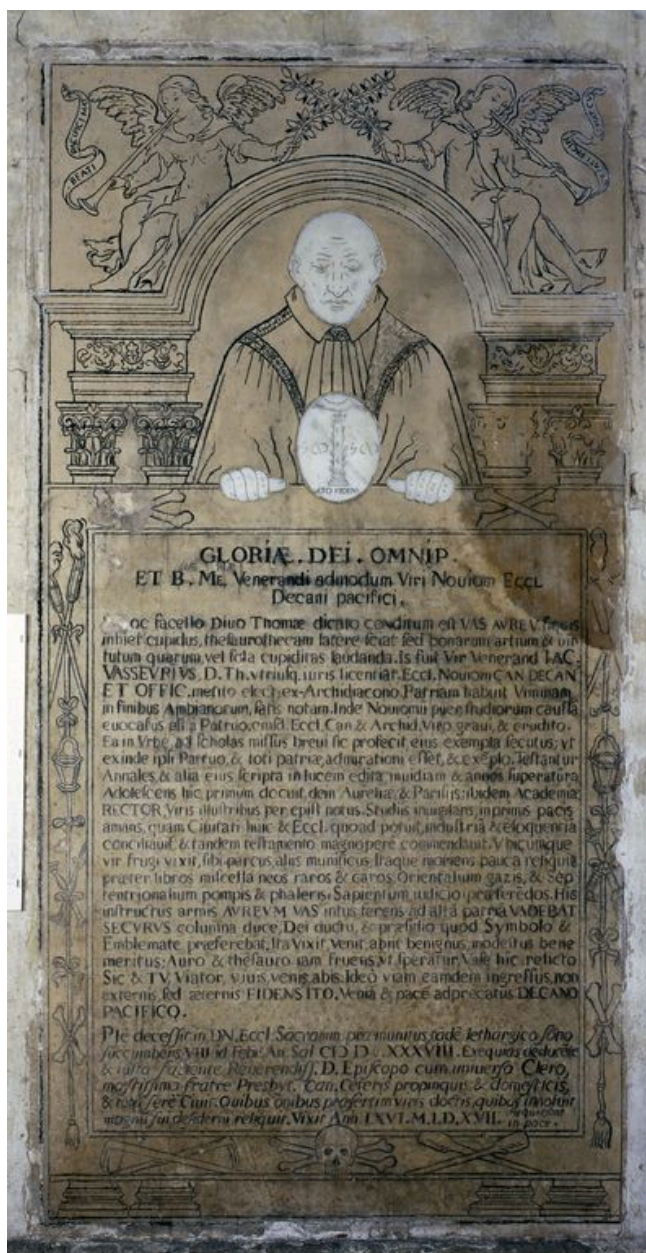 BEATI PACIFICI
GLORIÆ . DEI . OMNIP.
ET B . ME. Venerandi admodum Viri Nouiom ECCL
Decani pacifici .
oc sacello Diuo Thomæ dicato conditum est VAS AVREV.
inhiet cupidus, thesaurothecam latere sciat sed bonarum artium & uir
tutum quarum, vel sola cupiditas laudanda. Is fuit Vir Venerand IAC.
VASSEVRIVS. D. Th. vtriusq. iuris licentiat. Eccl. Nouiom CAN DECAN
ET OFFIC. merito elect. ex-Archidiacono. Patriam habuit Vimmam,
in finibus Ambianorum, satis notam. Inde Nouiomū puer studiorum caussa
euocatus est a Patruo, emsd. Eccl. Can & Archid. Viro graui, & erudito.
Ea in Vrbe, ad scholas missus breui sic profecit, eius exempla secutus; vt
exinde ipsi Patruo, & toti patriæ, admirationi esset, & exēplo. Testantur
Annales, & alia eius scripta in lucem edita, inuidiam & annos superatura
Adolescens hic primum docuit, dein Aureliæ, & Parisiis: ibidem Academiæ
RECTOR, Viris illustribus per epist. notus. Studiis inuigilans, inprimis pacis
amans, quam Ciuitati huic & Eccl. quoad potuit, industriâ & eloquentiâ
conciliauit, & tandem testamento magnopere commendauit. Vbicumque
vir frugi vixit, sibi parcus, aliis munificus. Itaque moriens pauca reliquit
præter libros miscellaneos raros & caros, Orientalium gazis, & Sep
tentrionalium pompis & phaleris, Sapientum iudicio præferēdos. His
instructus armis AVREVM VAS intus ferens ad alta patria VADEBAT
SECVRVS columna duce, Dei ductu, & præsidio quod Symbolo &
Emblemate præferebat. Ita vixit, venit, abiit benignus, modestus bene
meritus; Auro & thesauro iam fruens, vt speratur. Vale hic relicto
Sic & TV, Viator, viuis, venis, abis. Ideò viam eamdem ingressus, non
externis, sed æternis FIDENS ITO, Veniâ & pace adprecatus DECANO
PACIFICO.
Piè decessit in DN. Eccl. Sacramm præmunitus
succumbens VIII id Feb. An Sal XXXVIII. Exequias
& iusta faciente Reuerendiss. D. Episcopo cum uniuerso Clero,
mæstissimo fratre Presbyt. Can. Ceteris propinquis, & domesticis,
& totâ ferè Ciuit. Quibus omnibus præsertim viris doctis, quibus innotuit
magnū sui desiderū reliquit. Vixit Ann LXVI. M.I.D.XVII. requiescat
in pace.